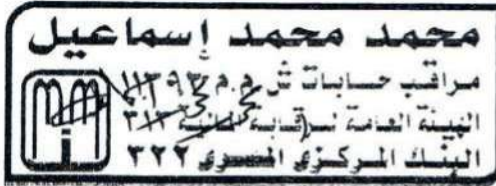 محمد محمد إسماعيل
مراقب حسابات ش.م.م
الهيئة العامة للرقابة المالية ٣١٣
البنك المركزي المصري ٣٢٢